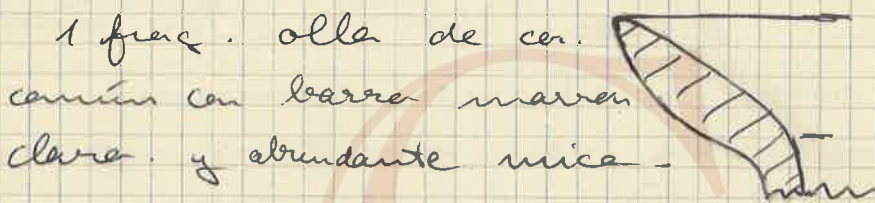 1 frag. olla de cer.
común con barro marrón
claro. y abundante mica -